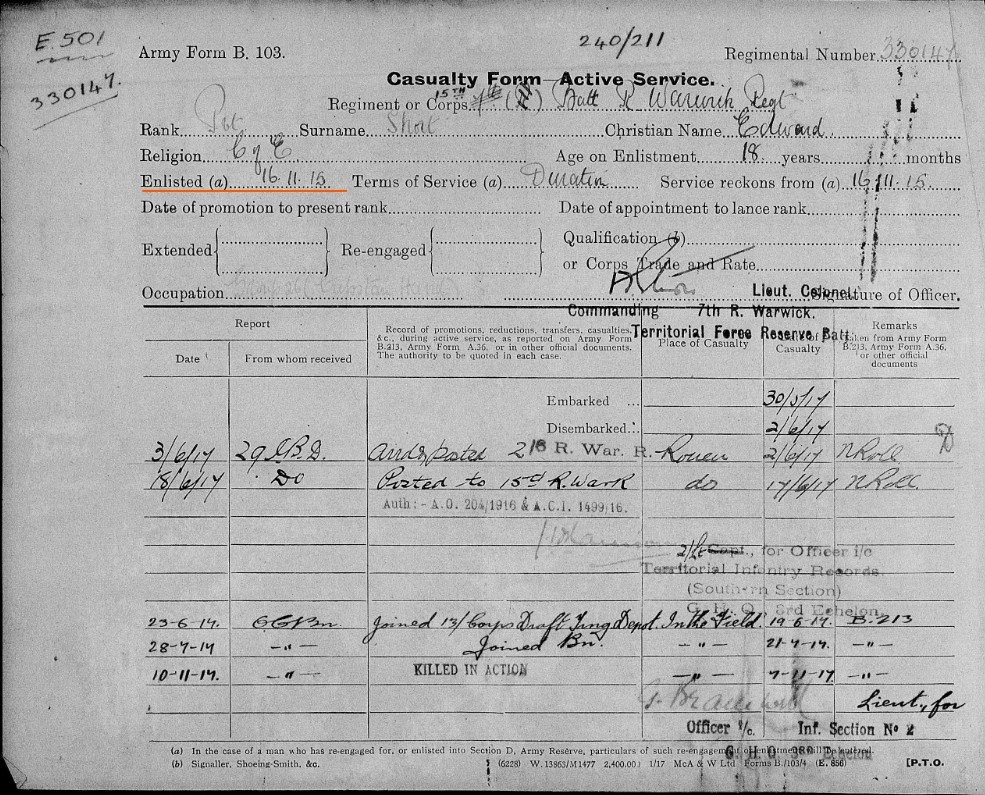 E.501
330147.
240/211
Army Form B. 103.
Regimental Number 330147
Casualty Form—Active Service.
Regiment or Corps 15TH Batt R Warwick Regt
Rank Pte Surname Short Christian Name Edward
Religion C of E Age on Enlistment 18 years months
Enlisted (a) 16.11.15 Terms of Service (a) Duration Service reckons from (a) 16.11.15.
Date of promotion to present rank Date of appointment to lance rank
Extended Re-engaged Qualification (b)
or Corps Trade and Rate
Occupation
Lieut. Colonel
Signature of Officer.
Commanding 7th R. Warwick.
Territorial Force Reserve Batt
Report
Date From whom received
Record of promotions, reductions, transfers, casualties, &c., during active service, as reported on Army Form B.213, Army Form A.36, or in other official documents. The authority to be quoted in each case.
Place of Casualty
Casualty
Remarks taken from Army Form B.213, Army Form A.36, or other official documents
Embarked ... 30/5/17
Disembarked... 2/6/17
3/6/17 29 I.B.D. and posted 2/8 R. War. R. Rouen 2/6/17 N Roll
18/6/17 Do Posted to 15th R. Wark do 17/6/17 N Roll.
Auth:- A.O. 204/1916 & A.C.I. 1499/16.
2/Lt Capt., for Officer i/c
Territorial Infantry Records
(Southern Section)
G.H.Q., 3rd Echelon.
23-6-17. OC Bn. Joined 13/Corps Draft Tng Depot. In the Field. 19-6-17. B.213
28-7-17 —"— Joined Bn. —"— 21-7-17. —"—
10-11-17. —"— KILLED IN ACTION —"— 7-11-17. —"—
Lieut., for
Officer i/c. Inf. Section No 2
G.H.Q. 3RD Echelon
(a) In the case of a man who has re-engaged for, or enlisted into Section D, Army Reserve, particulars of such re-engagement or enlistment will be entered.
(b) Signaller, Shoeing-Smith, &c.
(6228) W.13863/M1477 2,400,00. 1/17 McA & W Ltd Forms B./103/4 (E. 856) [P.T.O.